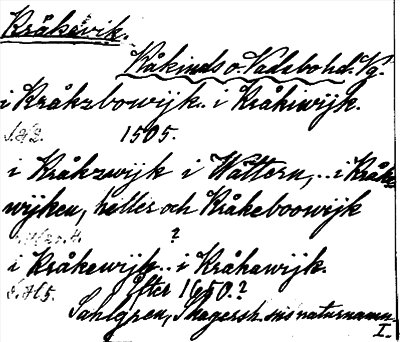 Kråkevik.
Kåkinds o. Vadsbo hd. Vg.
i Kråkzbowijk.. i Kråkiwijk.
1505.
i Kråkzwijk i Wåttern,.. i Kråke
wijken, heller och Kråkeboowijk
?
i Kråkewijk.. i Kråkawijk.
Efter 1650.?
Sahlgren, Skagersh. sns naturnamn.
I.